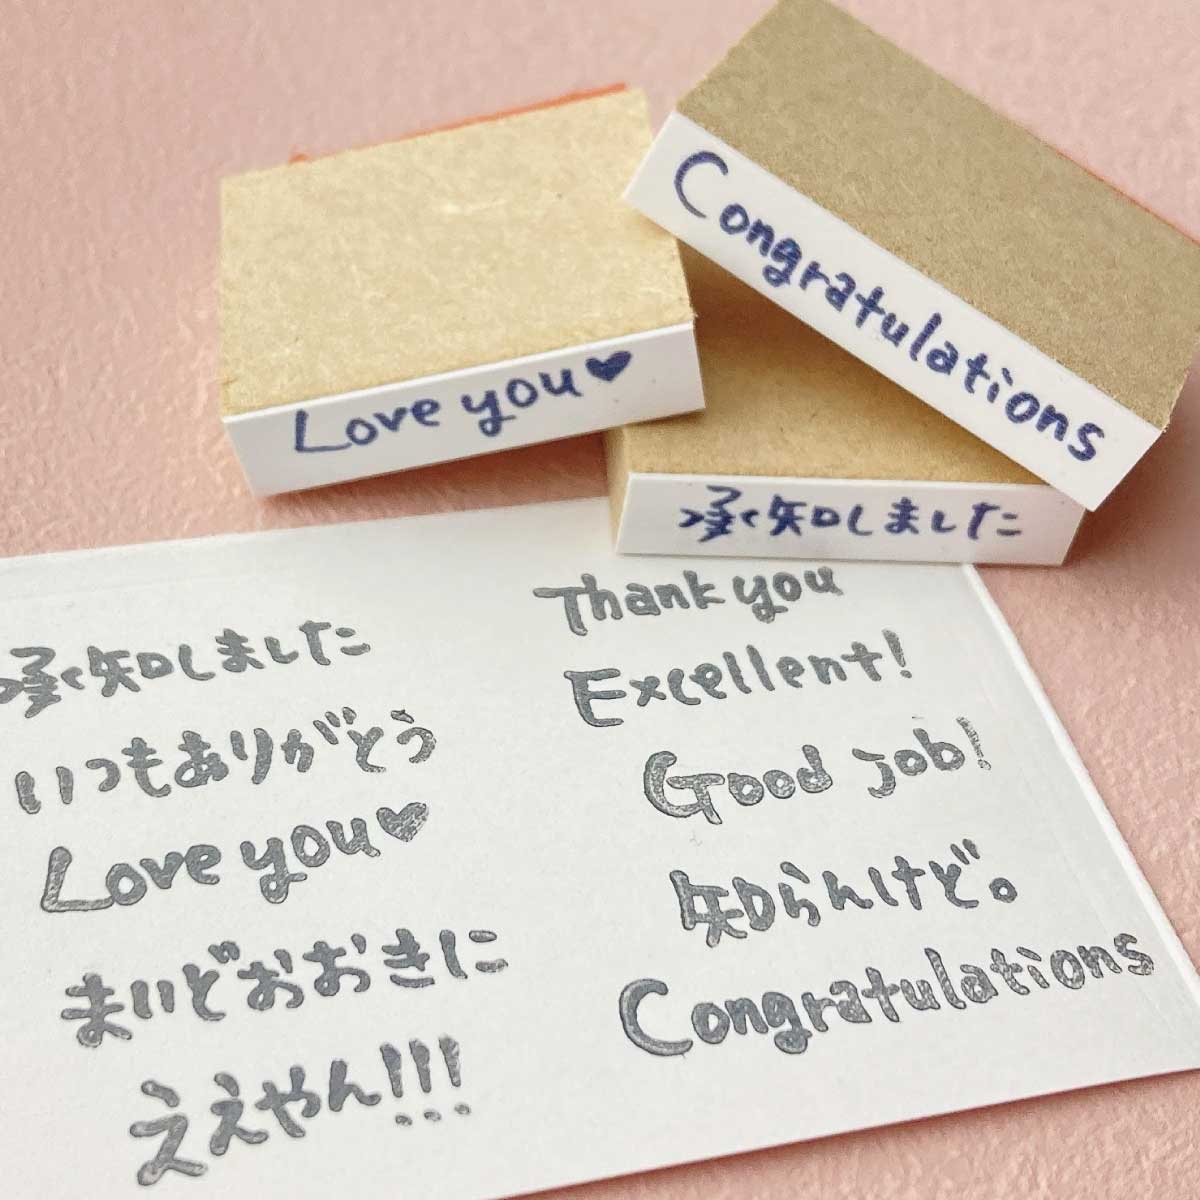 Love you♥
Congratulations
承知しました
承知しました
いつもありがとう
Love you♥
まいどおおきに
ええやん!!!
Thank you
Excellent!
Good job!
知らんけど。
Congratulations